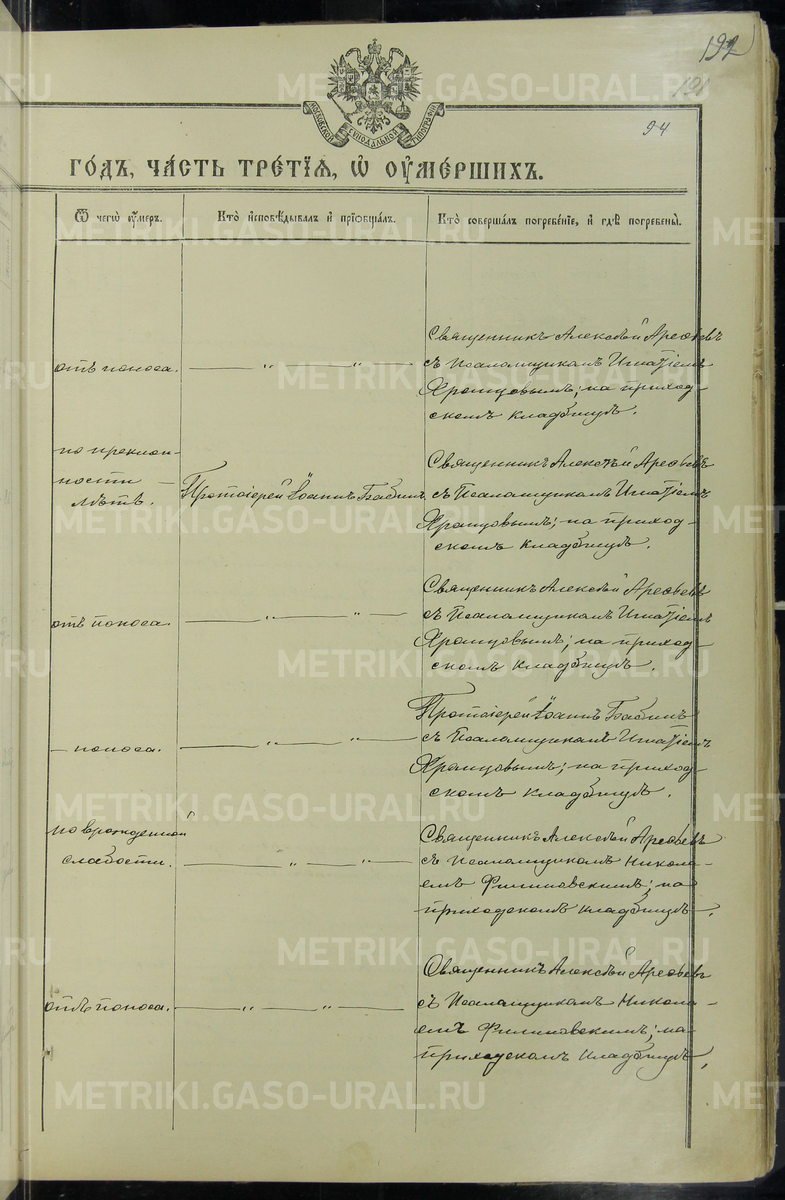 192
191
94
МОСКОВСКОЙ СУНОДАЛЬНОЙ ТИПОГРАФІИ
ГО́ДЪ, ЧА́СТЬ ТРЕ́ТІѦ, Ѡ ОУ҆МЕ́РШИХЪ.
Ѿ чегѡ̀ ᲂу҆́меръ.
Кто̀ и҆сповѣ́дывалъ и҆ прїѻбща́лъ.
Кто̀ соверша́лъ погребе́нїе, и҆ гдѣ̀ погребены̀.
отъ поноса. — „ — „ —
Священникъ Алексѣй Арефьевъ
съ Псаломщикомъ Игнатіемъ
Хромцовымъ; на приход-
скомъ кладбищѣ.
по преклон-
ности —
лѣтъ.
Протоіерей Іоаннъ Бабинъ
Священникъ Алексѣй Арефьевъ
съ Псаломщикомъ Игнатіемъ
Хромцовымъ; на приход-
скомъ кладбищѣ.
отъ поноса. — „ — „ —
Священникъ Алексѣй Арефьевъ
съ Псаломщикомъ Игнатіемъ
Хромцовымъ; на приход-
скомъ кладбищѣ.
— поноса. — „ — „ —
Протоіерей Іоаннъ Бабинъ
съ Псаломщикомъ Игнатіемъ
Хромцовымъ; на приход-
скомъ кладбищѣ.
по врожденной
слабости. — „ — „ —
Священникъ Алексѣй Арефьевъ
съ Псаломщикомъ Никола-
емъ Филиповскимъ; на
приходскомъ кладбищѣ.
отъ поноса. — „ — „ —
Священникъ Алексѣй Арефьевъ
съ Псаломщикомъ Никола-
емъ Филиповскимъ; на
приходскомъ кладбищѣ.
METRIKI.GASO-URAL.RU